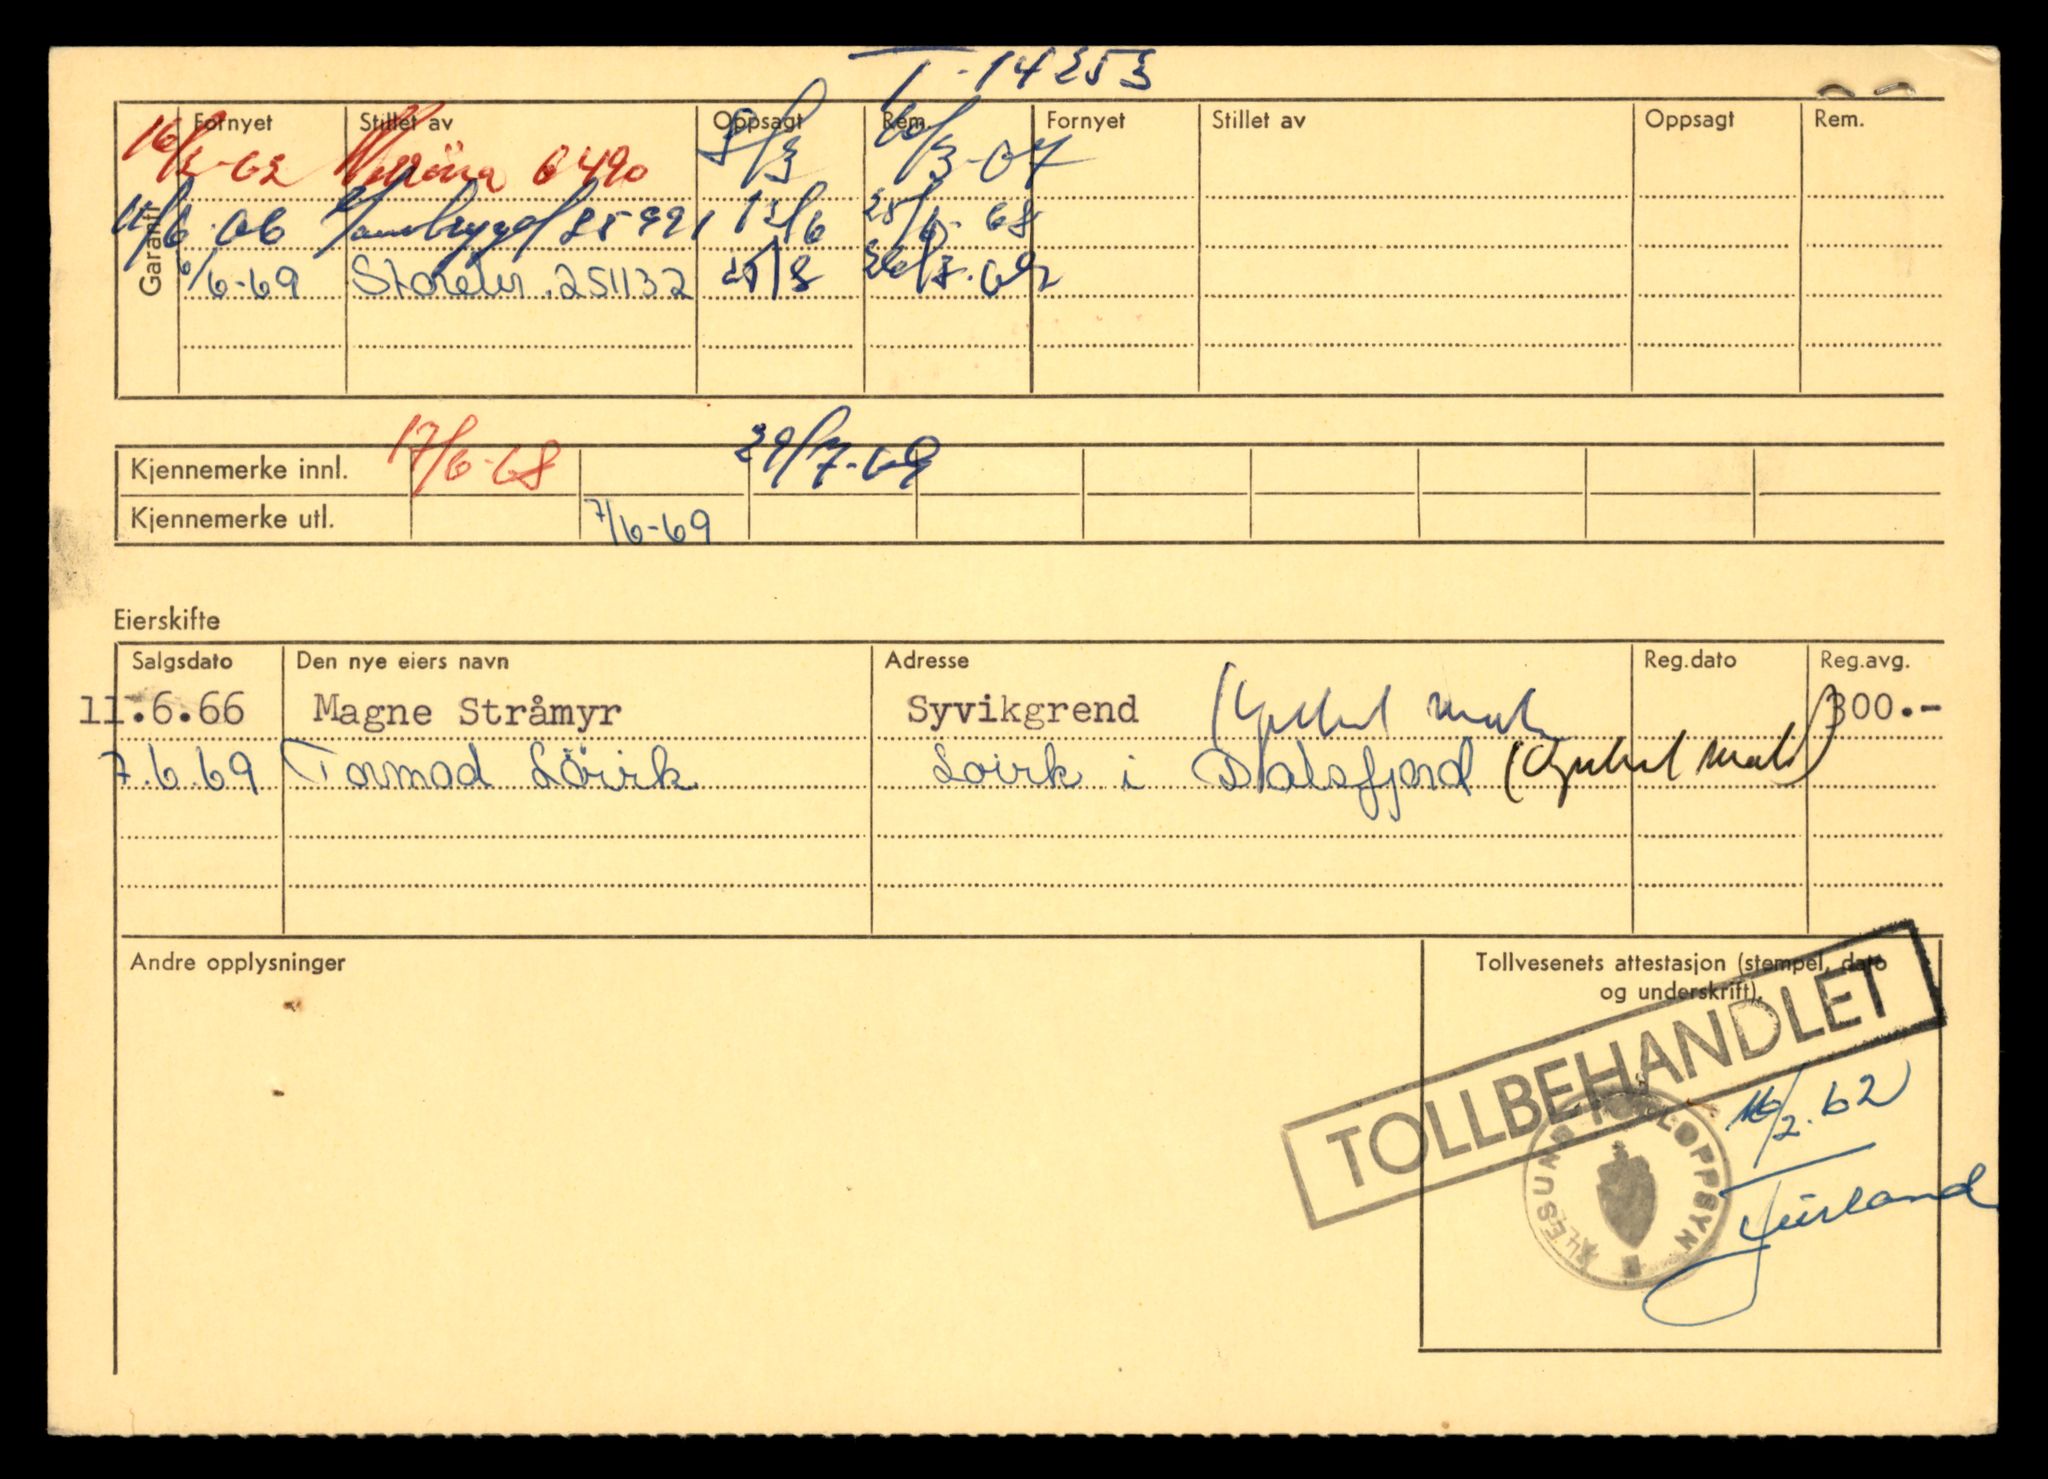 T-14253
Fornyet Stillet av Oppsagt Rem. Fornyet Stillet av Oppsagt Rem.
16/2-62 6490 8/3 10/3-67
Garanti
11/6-66 Samtrygd 25991 13/6 25/6-68
6/6-69 Storebr. 251132 25/8 26/8-69
Kjennemerke innl. 17/6-68 29/7-69
Kjennemerke utl. 7/6-69
Eierskifte
Salgsdato Den nye eiers navn Adresse Reg.dato Reg.avg.
11.6.66 Magne Stråmyr Syvikgrend 300.-
7.6.69 Tormod Lövik Lovik i Dalsfjord
Andre opplysninger
Tollvesenets attestasjon (stempel, dato
og underskrift).
TOLLBEHANDLET
ÅLESUND TOLLOPPSYN
16/2.62